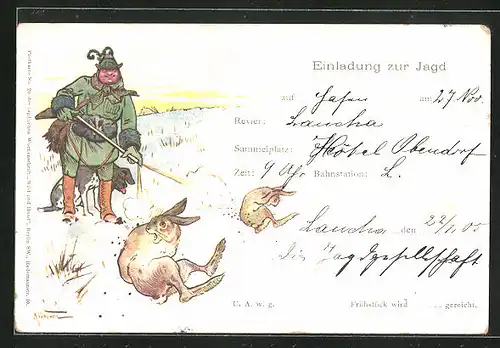 Einladung zur Jagd
auf Hasen am 27 Nov.
Revier: Laucha
Sammelplatz: Hôtel Obendorf
Zeit: 9 Uhr Bahnstation: L.
Laucha, den 22/11 05
die Jagdgesellschaft
U. A. w. g. Frühstück wird ..... gereicht.